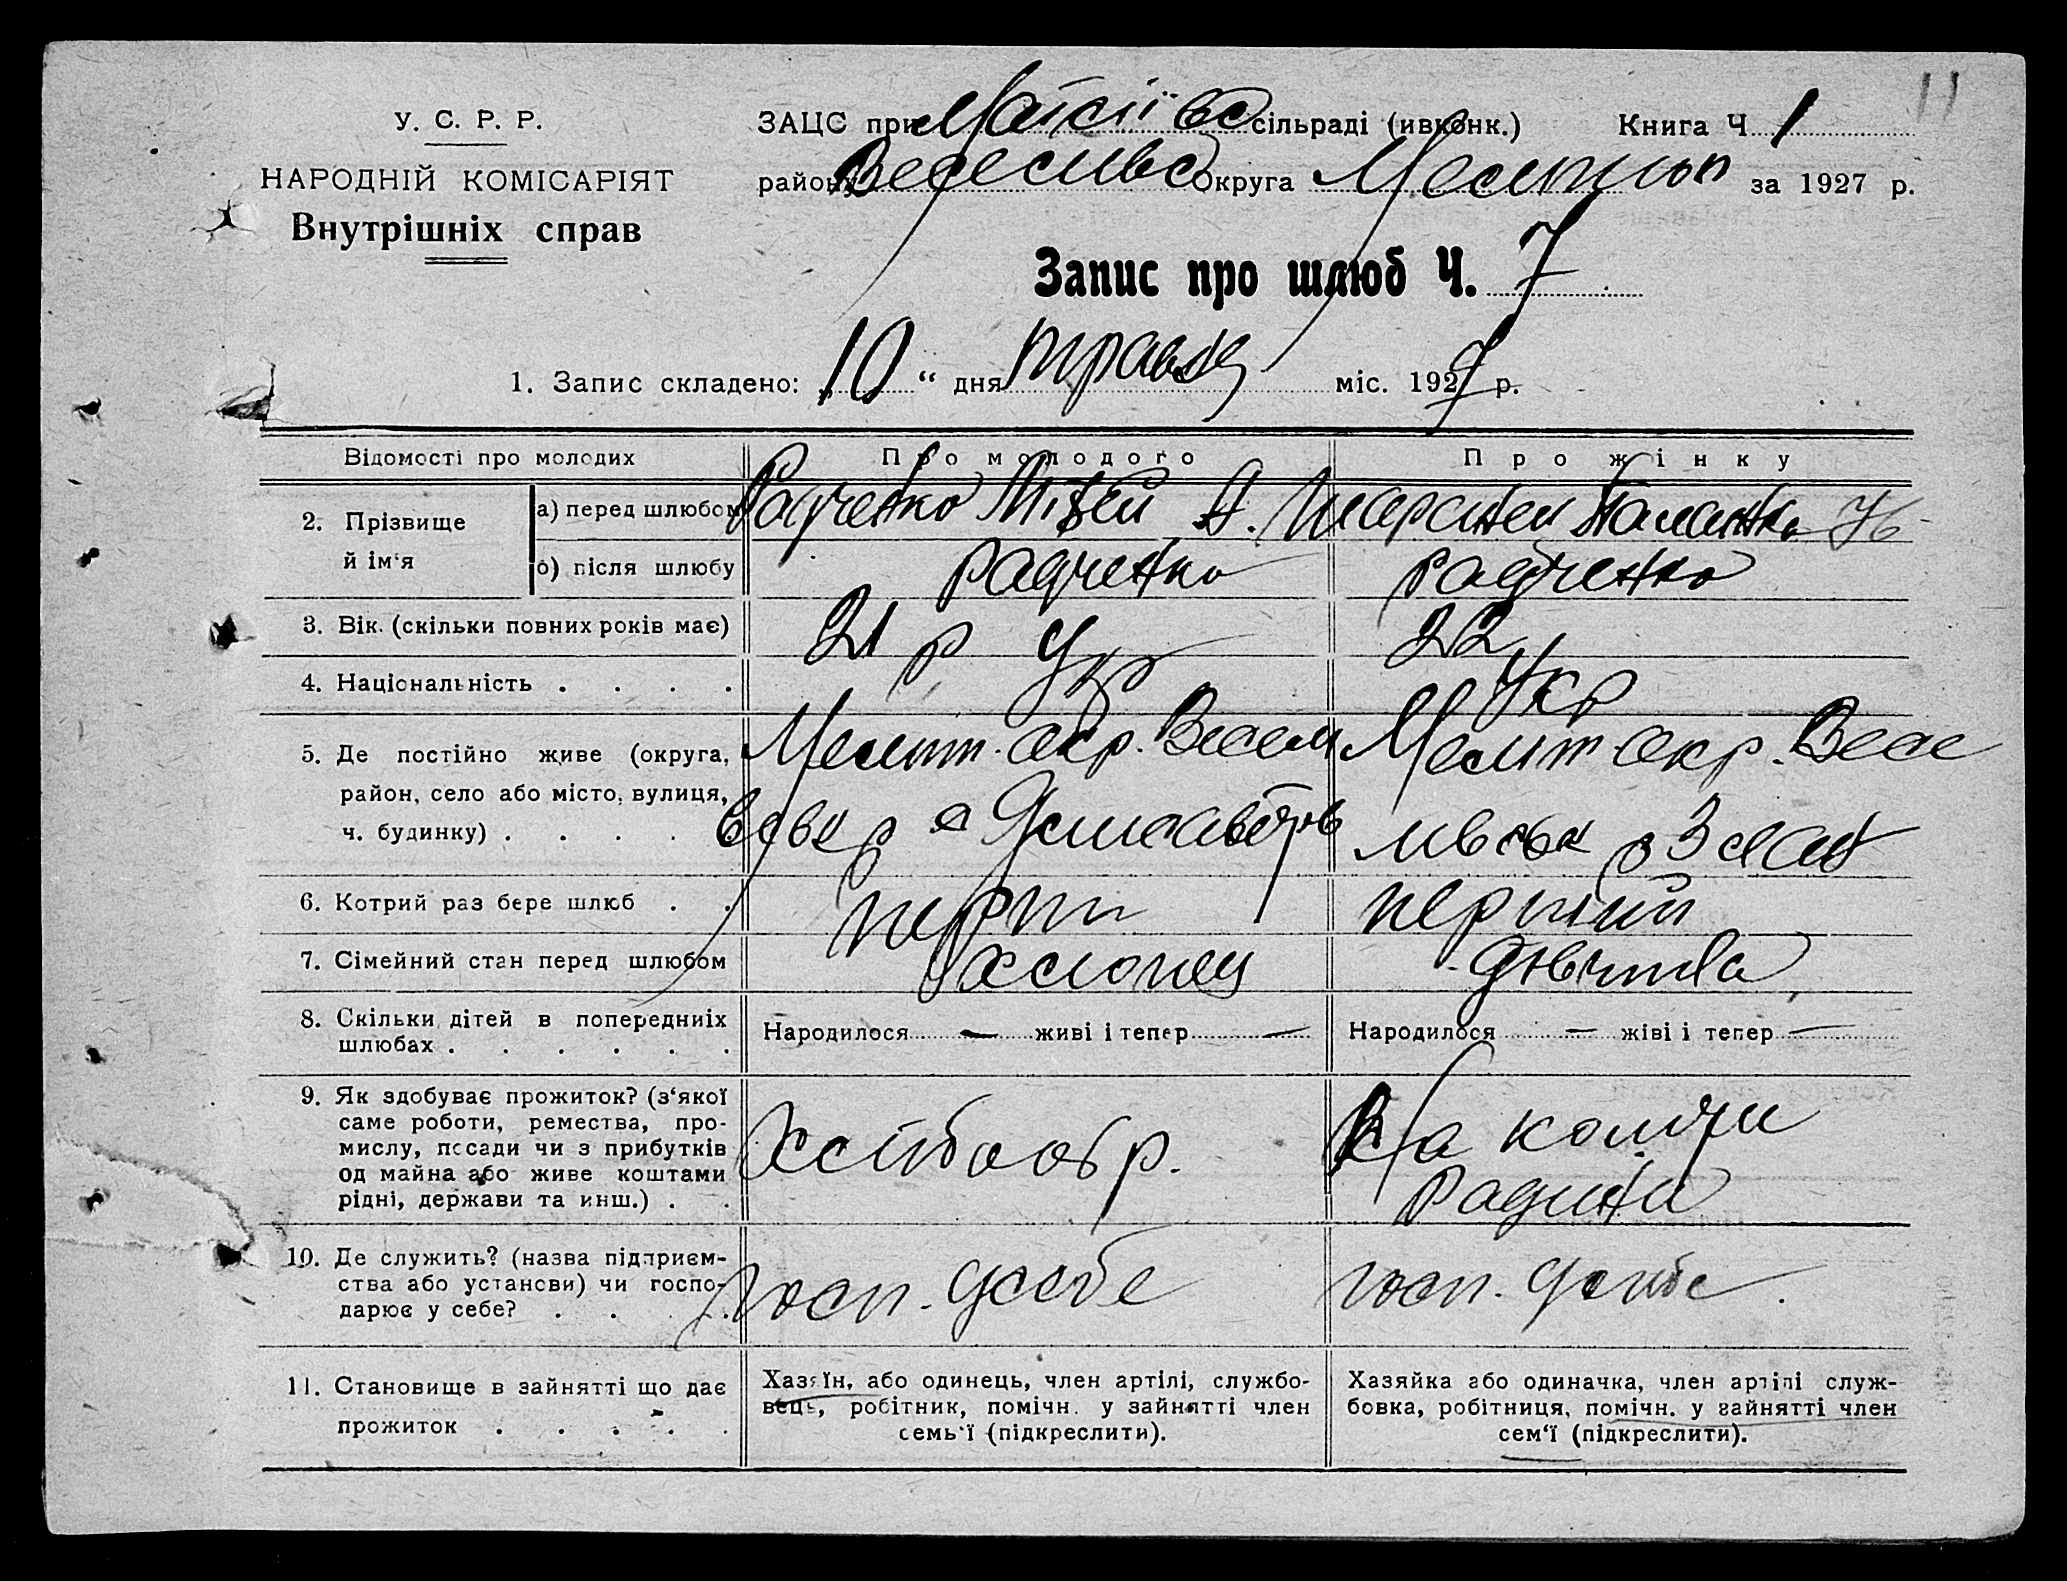 11
У. С. Р. Р.
НАРОДНІЙ КОМІСАРІЯТ
Внутрішніх справ
ЗАЦС при сільраді (ивконк.) Книга Ч 1
району Веселивс Округа Мелитоп за 1927 р.
Запис про шлюб Ч. 7
1. Запис складено: 10 “ дня травня міс. 1927 р.
Відомості про молодих Про молодого Про жінку
2. Прізвище й ім‘я
а) перед шлюбом Радченко А.
б) після шлюбу Радченко Радченко
3. Вік. (скільки повних років має) 21 р 22
4. Національність . . . . Укр Укр
5. Де постійно живе (округа, Мелит. окр. Весели Мелит окр. Весе
район, село або місто, вулиця,
ч. будинку) . . . .
6. Котрий раз бере шлюб . . перш перший
7. Сімейний стан перед шлюбом хлопец дівчина
8. Скільки дітей в попередниіх Народилося — живі і тепер — Народилося — живі і тепер —
шлюбах . . . . . .
9. Як здобуває прожиток? (з‘якої
саме роботи, ремества, про-
мислу, посади чи з прибутків Хлібооб р. На кошти
од майна або живе коштами
рідні, держави та инш.) . . родини
10. Де служить? (назва підприєм-
ства або установи) чи госпо- госп. у себе госп. у себе
дарює у себе? . . . .
11. Становище в зайнятті що дає
прожиток . . . . .
Хазяїн, або одинець, член артілі, службо-
вець, робітник, помічн. у зайнятті член
семь‘ї (підкреслити).
Хазяйка або одиначка, член артілі служ-
бовка, робітниця, помічн. у зайнятті член
сем‘ї (підкреслити).